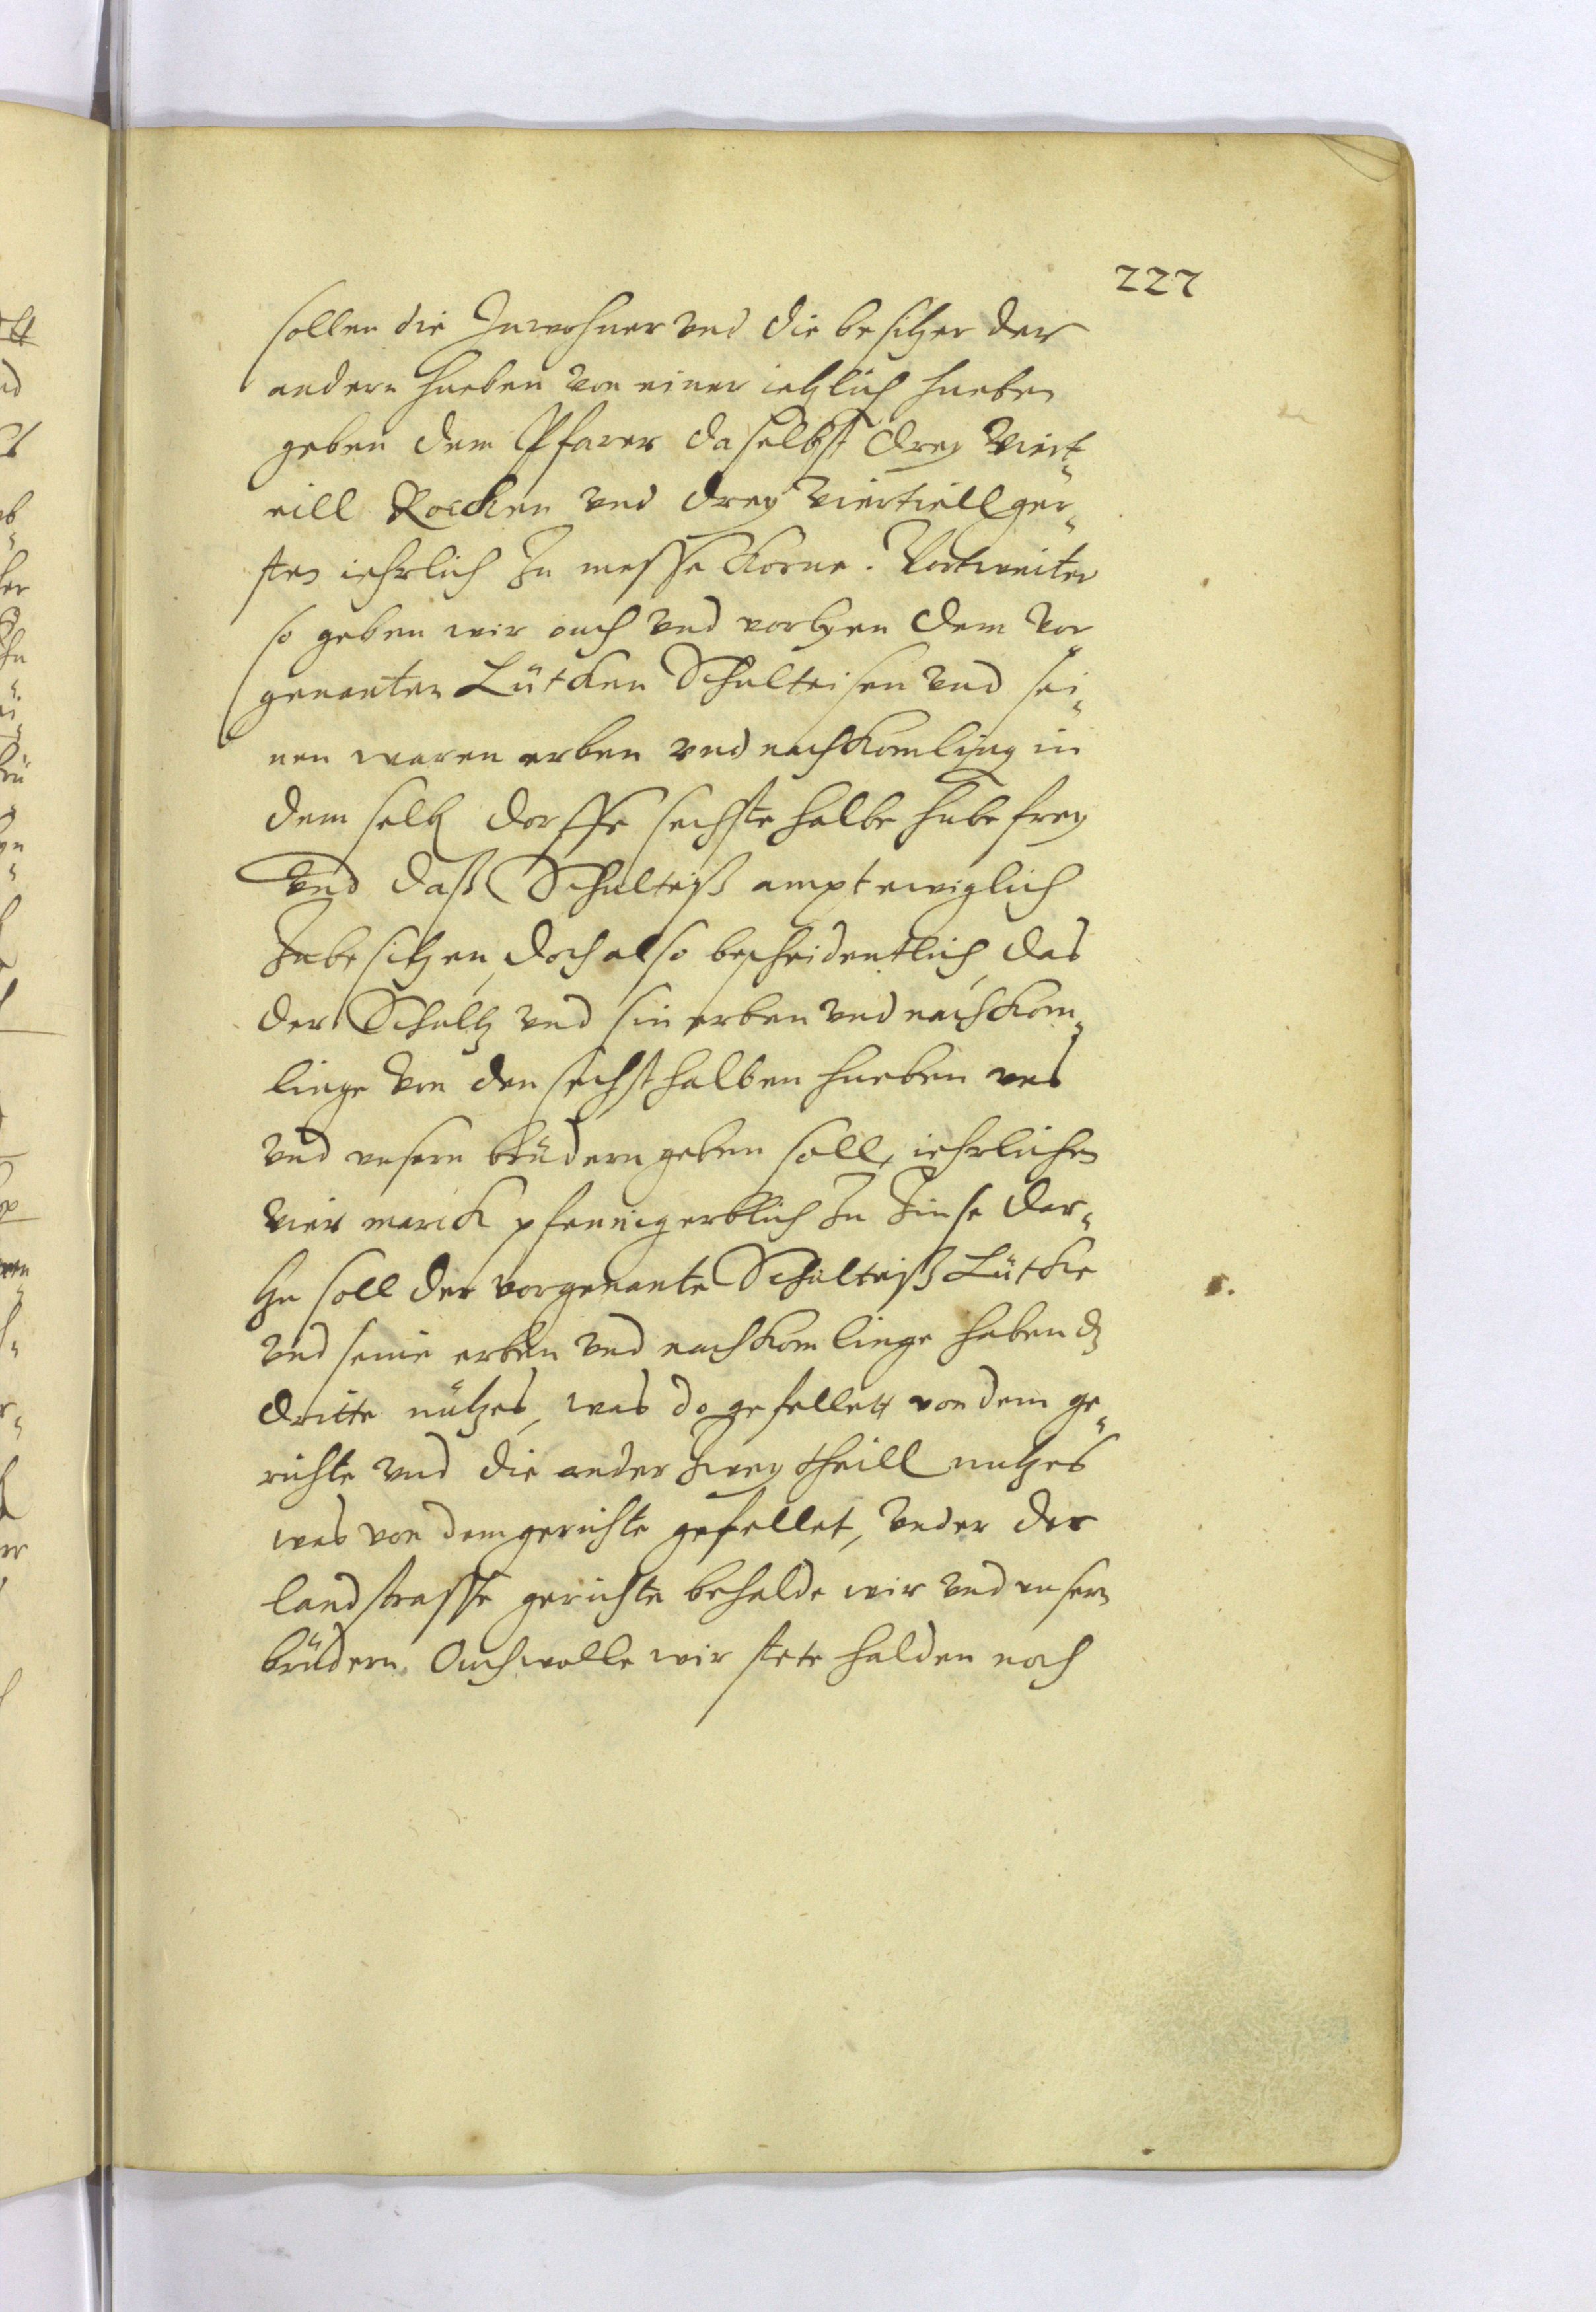 227
sollen die Inwohner vnd die besitzer der
andern hueben von einer ietzlich hueben
geben dem Pfarer daselbst drey viert-
eill Rocken vnd drey viertiell ger-
sten iehrlich zu messe korne. Vortweiter
so geben wir ouch vnd vorlyen dem vor
genanten Lütken Schulteisen vnd sei-
nen waren erben vnd nachkomling in
dem selb dorffe sechste halbe hube frey
vnd daß Schulteiß ampt ewiglich
Zubesitzen, doch also bescheidentlich, das
der Schultz vnd sin erben vnd nachkom-
linge von den sechsthalben hueben vns
vnd vnsern brüdern geben soll, iehrlichen
vier marck pfennig erblich zu Zinse dar-
zu soll der vorgenante Schulteiß Lütke
vnd seine erben vnd nachkomlinge haben dz
dritte nützes, was do gefellett von dem ge-
richte vnd die ander zwey theill nutzes
was von dem gerichte gefellet, vnder der
landstrasse gerichte behalde wir vnd vnsern
brüdern. Ouch wolle wir stete halden noch